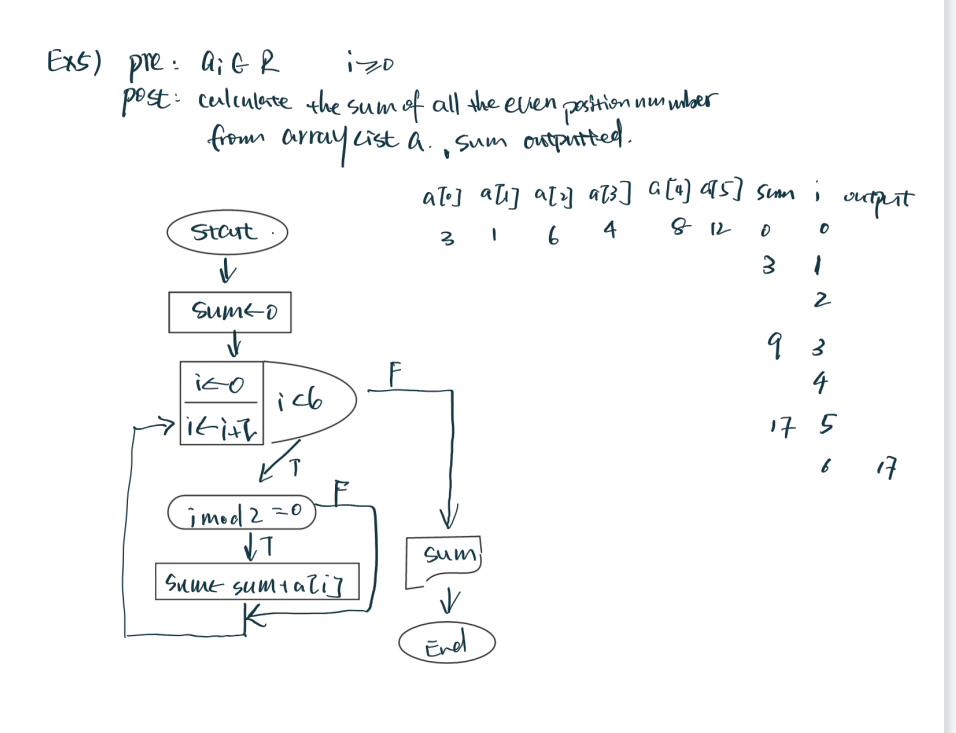 Ex5) pre: ai ∈ R i≥0
post: calculate the sum of all the even position number
from array list a., sum outputted.
a[0] a[1] a[2] a[3] a[4] a[5] sum i output
3 1 6 4 8 12 0 0
3 1
2
9 3
4
17 5
6 17
Start
sum←0
i←0
i<6
F
i←i+1
T
i mod 2 =0
F
T
sum← sum+a[i]
sum
End